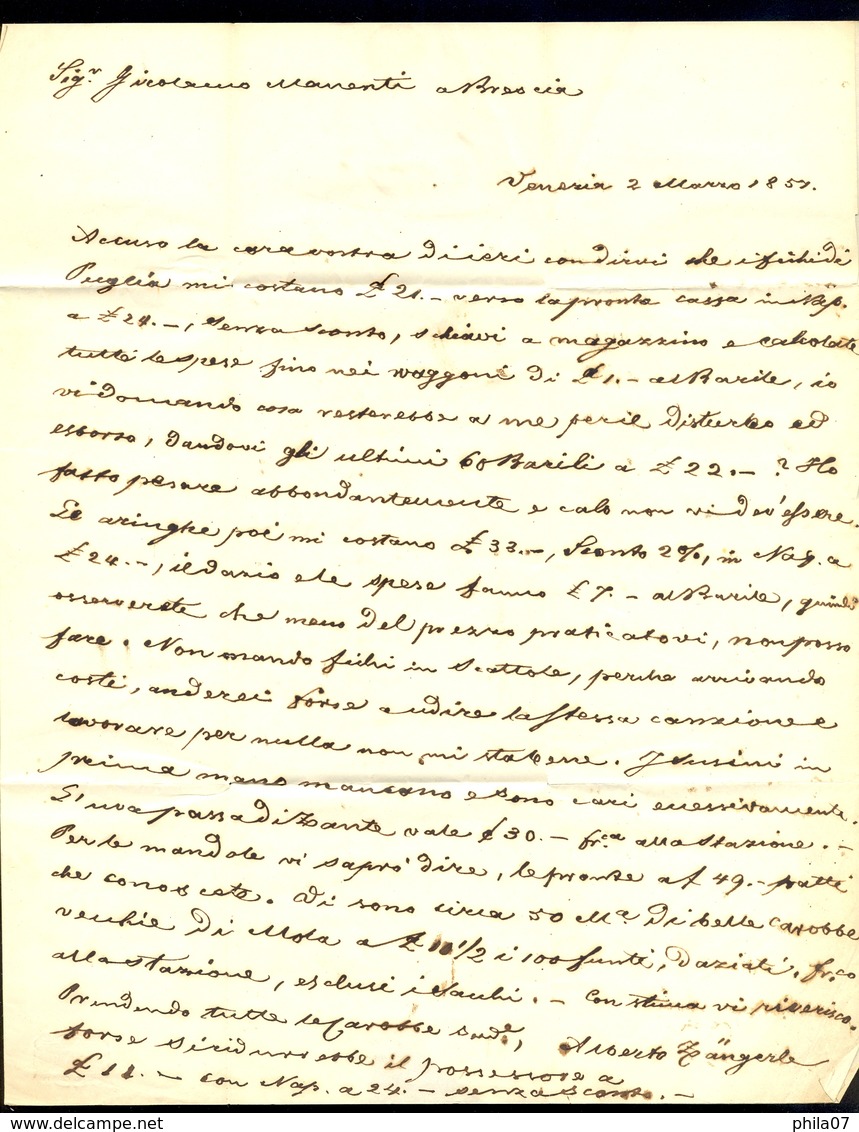 Sig.r Girolamo Manenti a Brescia
Venezia 2 Marzo 1851.
Accuso la cara vostra di ieri con dirvi che i fichi di
Puglia mi costano £ 21.- verso la pronta cassa in Nap.
a £ 24.-, senza sconto, schiavi a magazzino e calcolate
tutte le spese fino nei waggoni di £ 1.- al Barile, io
vi domando cosa resterebbe a me per il disturbo ed
esborso, dandovi gli ultimi 60 Barili a £ 22.- ? Ho
fatto pesare abbondantemente e calo non vi dev'essere.
Le aringhe poi mi costano £ 33.-, Sconto 2%, in Nap. a
£ 24.-, il dazio e le spese fanno £ 7.- al Barile, quindi
osserverete che meno del prezzo praticatovi, non posso
fare. Non mando fichi in Scattole, perche arrivando
costì, anderei forse a udire la stessa canzione e
lavorare per nulla non mi sta bene. I susini in
prima mano mancano e sono cari eccessivamente.
L'uva passa di Zante vale £ 30.- fr.ca alla Stazione.-
Per le mandole vi saprò dire, le pronte a f 49.- patti
che conoscete. Vi sono circa 50 M.a di belle carobbe
vecchie di Mola a £ 11 1/2 i 100 funti, daziati, fr.co
alla stazione, esclusi i sacchi.- Con stima vi riverisco.
Prendendo tutte le Carobbe sud.e, Alberto Zängerle
forse si ridurrebbe il possessore a
£ 11.- con Nap. a 24.- senza sconto.-
phila07